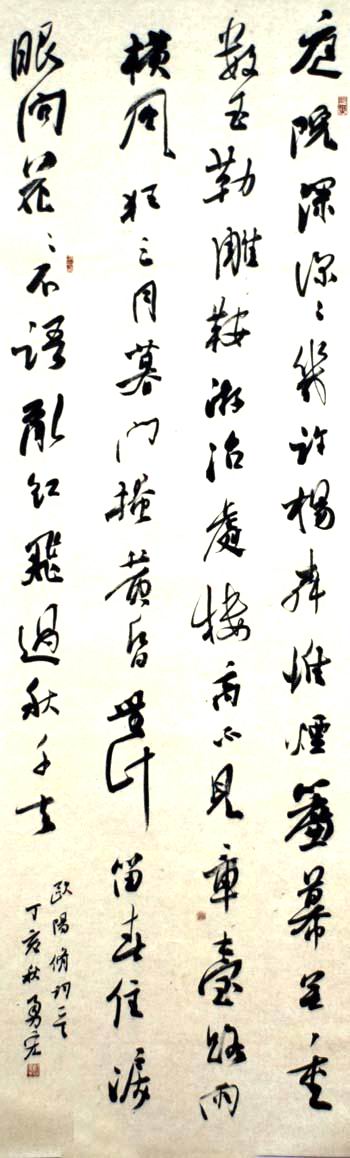 庭院深深〻幾許楊柳堆煙簾幕無重
數玉勒雕鞍游冶處樓高不見章臺路雨
橫風狂三月暮門掩黃昏無計留春住淚
眼問花〻不語亂紅飛過秋千去
歐陽脩詞
丁亥秋勇宏